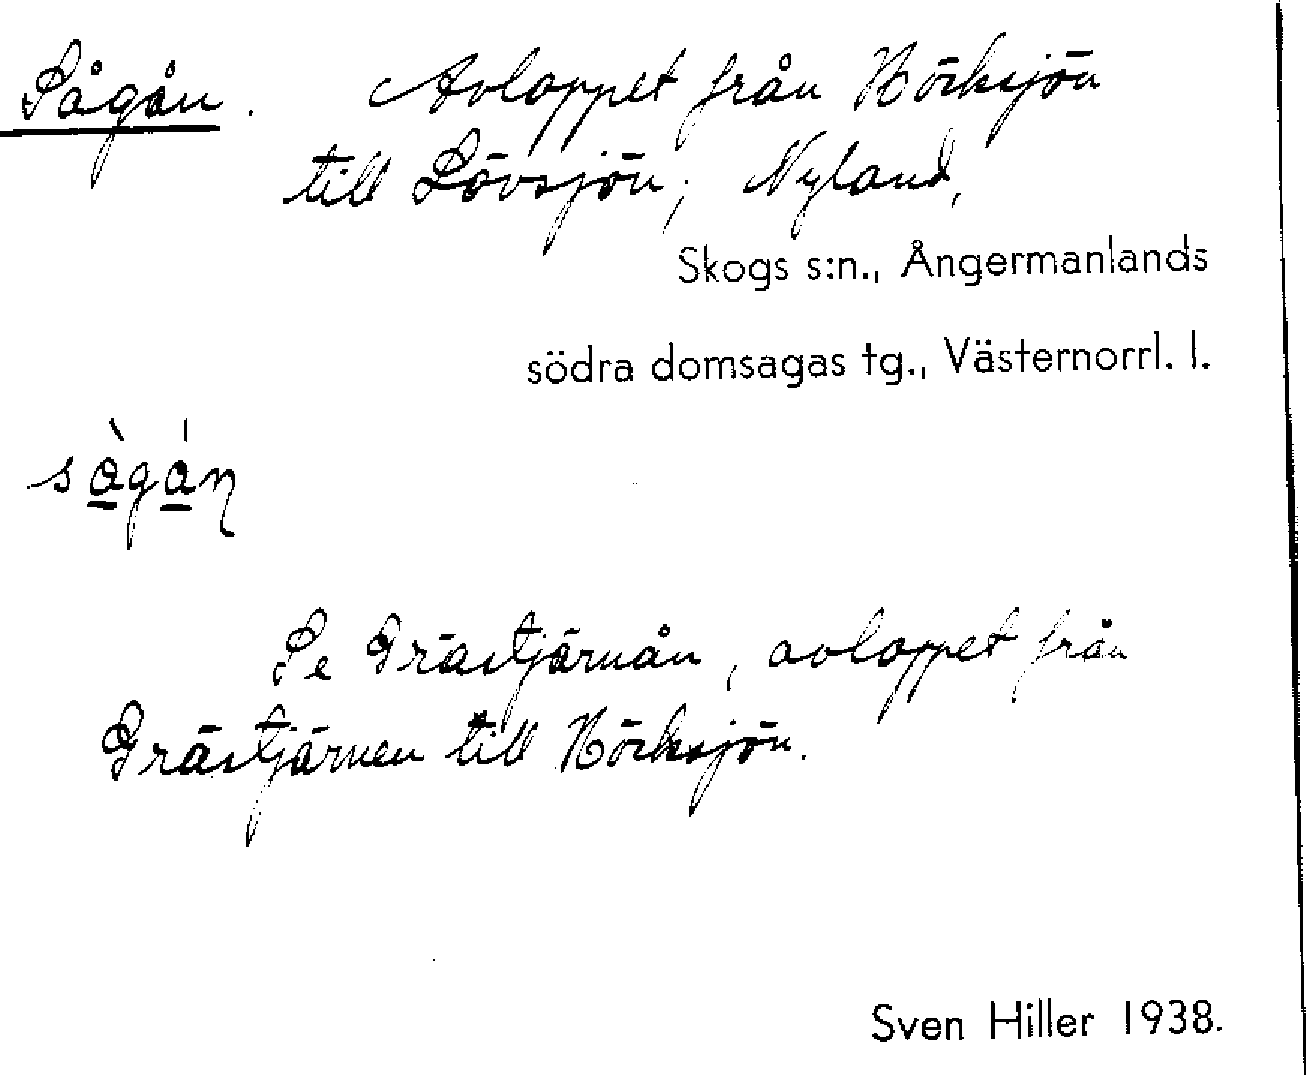 Sågån. Avloppet från Hörksjön
till Lövsjön; Nyland,
Skogs s:n., Ångermanlands
södra domsagas tg., Västernorrl. l.
sàgán
Se Grästjärnån, avloppet från
Grästjärnen till Hörksjön.
Sven Hiller 1938.